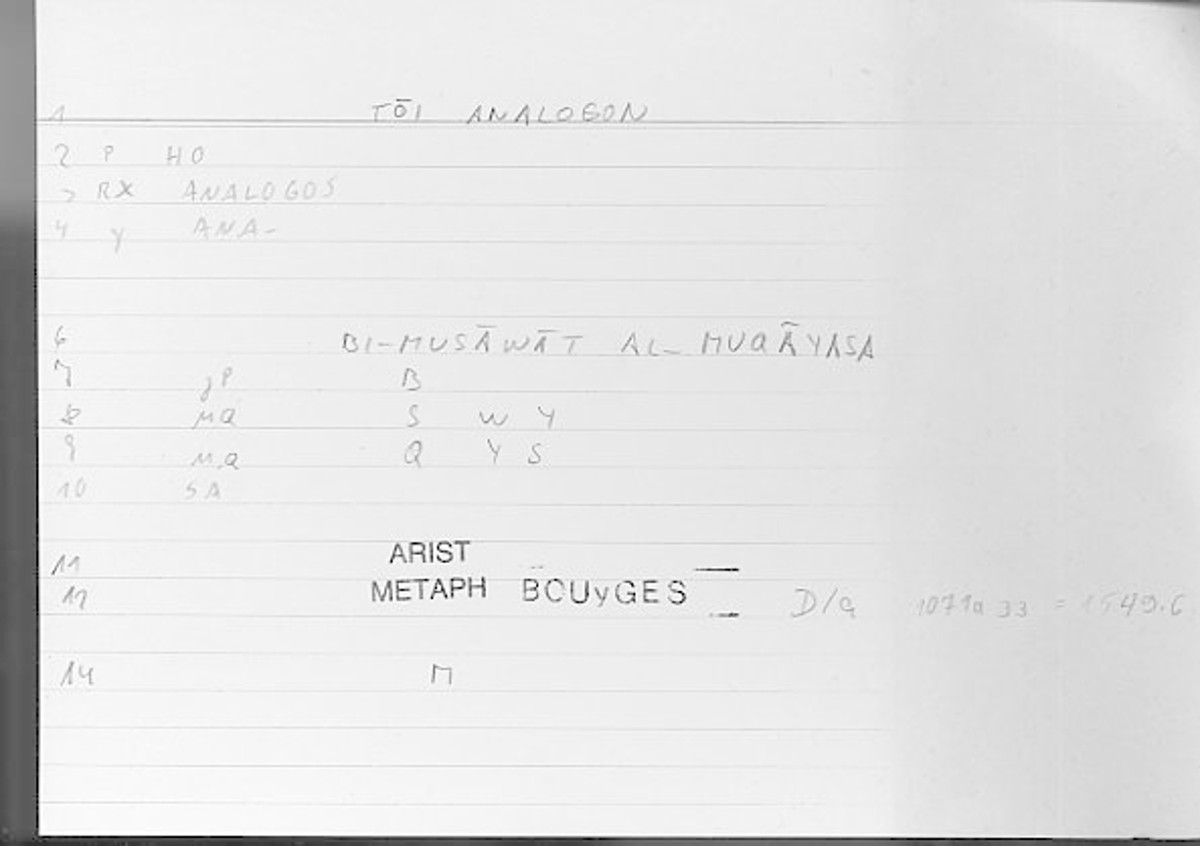 1 TŌI ANALOGON
2 P HO
3 RX ANALOGOS
4 y ANA-
6 BI-MUSĀWĀT AL-MUQĀYASA
7 gP B
8 MQ S W Y
9 MQ Q Y S
10 SA
11 ARIST
12 METAPH BOUyGES D/a 1071a 33 = 1549.6
14 M